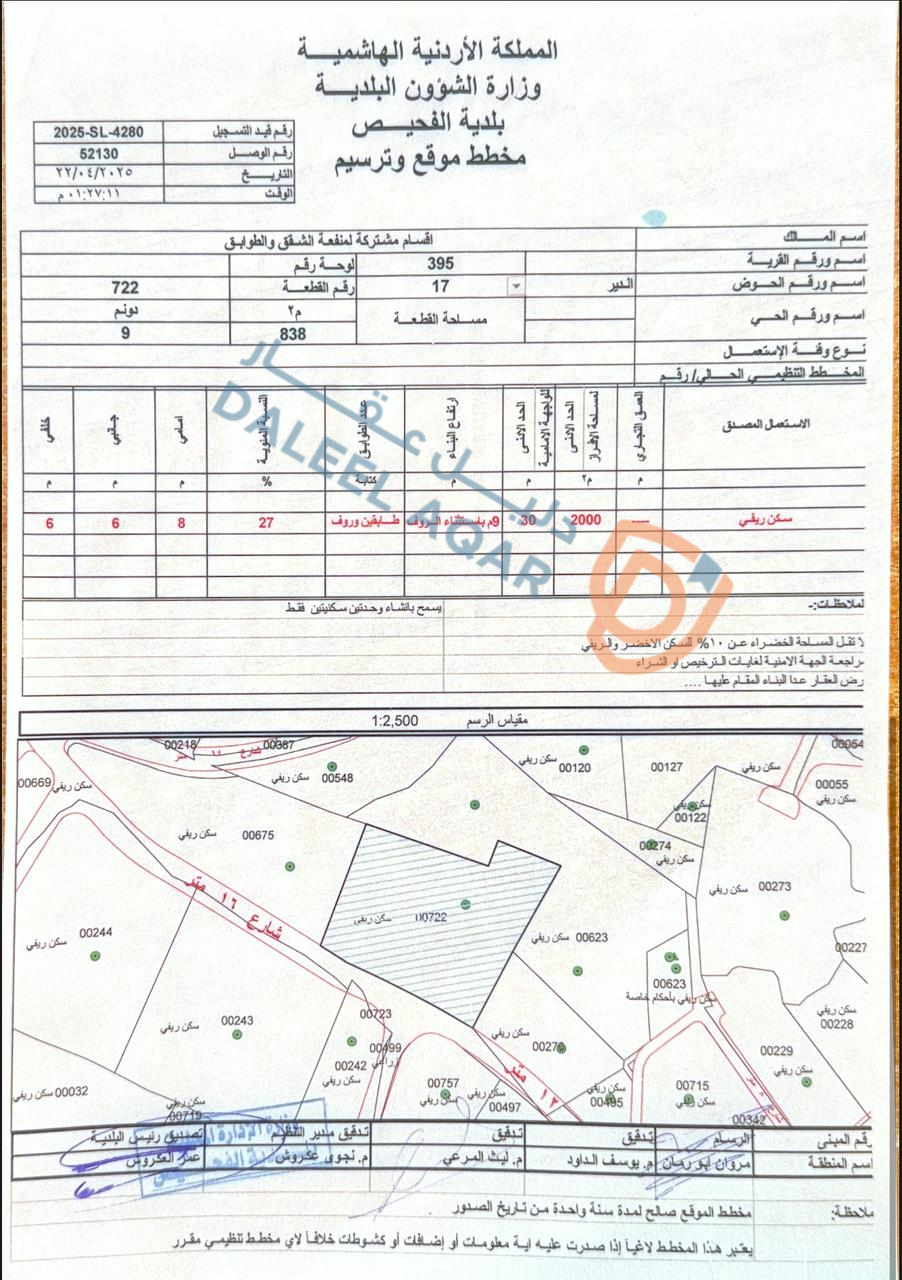 المملكة الأردنية الهاشمية
وزارة الشؤون البلدية
بلدية الفحيص
مخطط موقع وترسيم
رقم قيد التسجيل 2025-SL-4280
رقم الوصل 52130
التاريخ ٢٢/٠٤/٢٠٢٥
الوقت ٠١:٢٧:١١ م
اسم المالك اقسام مشتركة لمنفعة الشقق والطوابق
اسم ورقم القرية 395 لوحة رقم
اسم ورقم الحوض الدير 17 رقم القطعة 722
اسم ورقم الحي مساحة القطعة م٢ دونم
838 9
نوع وفئة الإستعمال
المخطط التنظيمي الحالي/ رقم
الاستعمال المصدق العمق التجاري الحد الادنى لمساحة الافراز الحد الادنى للواجهة الامامية ارتفاع البناء عدد الطوابق النسبة المئوية امامي جانبي خلفي
م م٢ م م كتابة % م م م
سكن ريفي ---- 2000 30 9م باستثناء الروف طابقين وروف 27 8 6 6
لملاحظات:- يسمح بانشاء وحدتين سكنيتين فقط
لا تقل المساحة الخضراء عن ١٠% للسكن الاخضر والريفي
مراجعة الجهة الامنية لغايات الترخيص او الشراء
رض العقار عدا البناء المقام عليها ....
دليل عقار
DALEEL AQAR
مقياس الرسم 1:2,500
00218
00387
شارع
متر
00054
00669
سكن ريفي
سكن ريفي
00548
سكن ريفي
00120
00127
سكن ريفي
00055
سكن ريفي
سكن ريفي
00675
سكن ريفي
00122
00274
سكن ريفي
سكن ريفي
00273
شارع ١٦ متر
سكن ريفي
00722
سكن ريفي
00244
سكن ريفي
00623
00227
00623
سكن ريفي بأحكام خاصة
سكن ريفي
00228
سكن ريفي
00243
00723
سكن ريفي
00499
زراعي
00242
سكن ريفي
سكن ريفي
١٢ متر
00229
سكن ريفي
سكن ريفي
00032
سكن ريفي
00719
00757
سكن ريفي
سكن ريفي
00497
سكن ريفي
00495
00715
سكن ريفي
00342
رقم المبنى الرسام تدقيق تدقيق تدقيق مدير التنظيم تصديق رئيس البلدية
اسم المنطقة مروان ابو رمان م. يوسف الداود م. ليث المرعي م. نجوى عكروش عمر العكروش
ملاحظة: مخطط الموقع صالح لمدة سنة واحدة من تاريخ الصدور .
يعتبر هذا المخطط لاغياً إذا صدرت عليه اية معلومات أو إضافات أو كشوطات خلافاً لاي مخطط تنظيمي مقرر